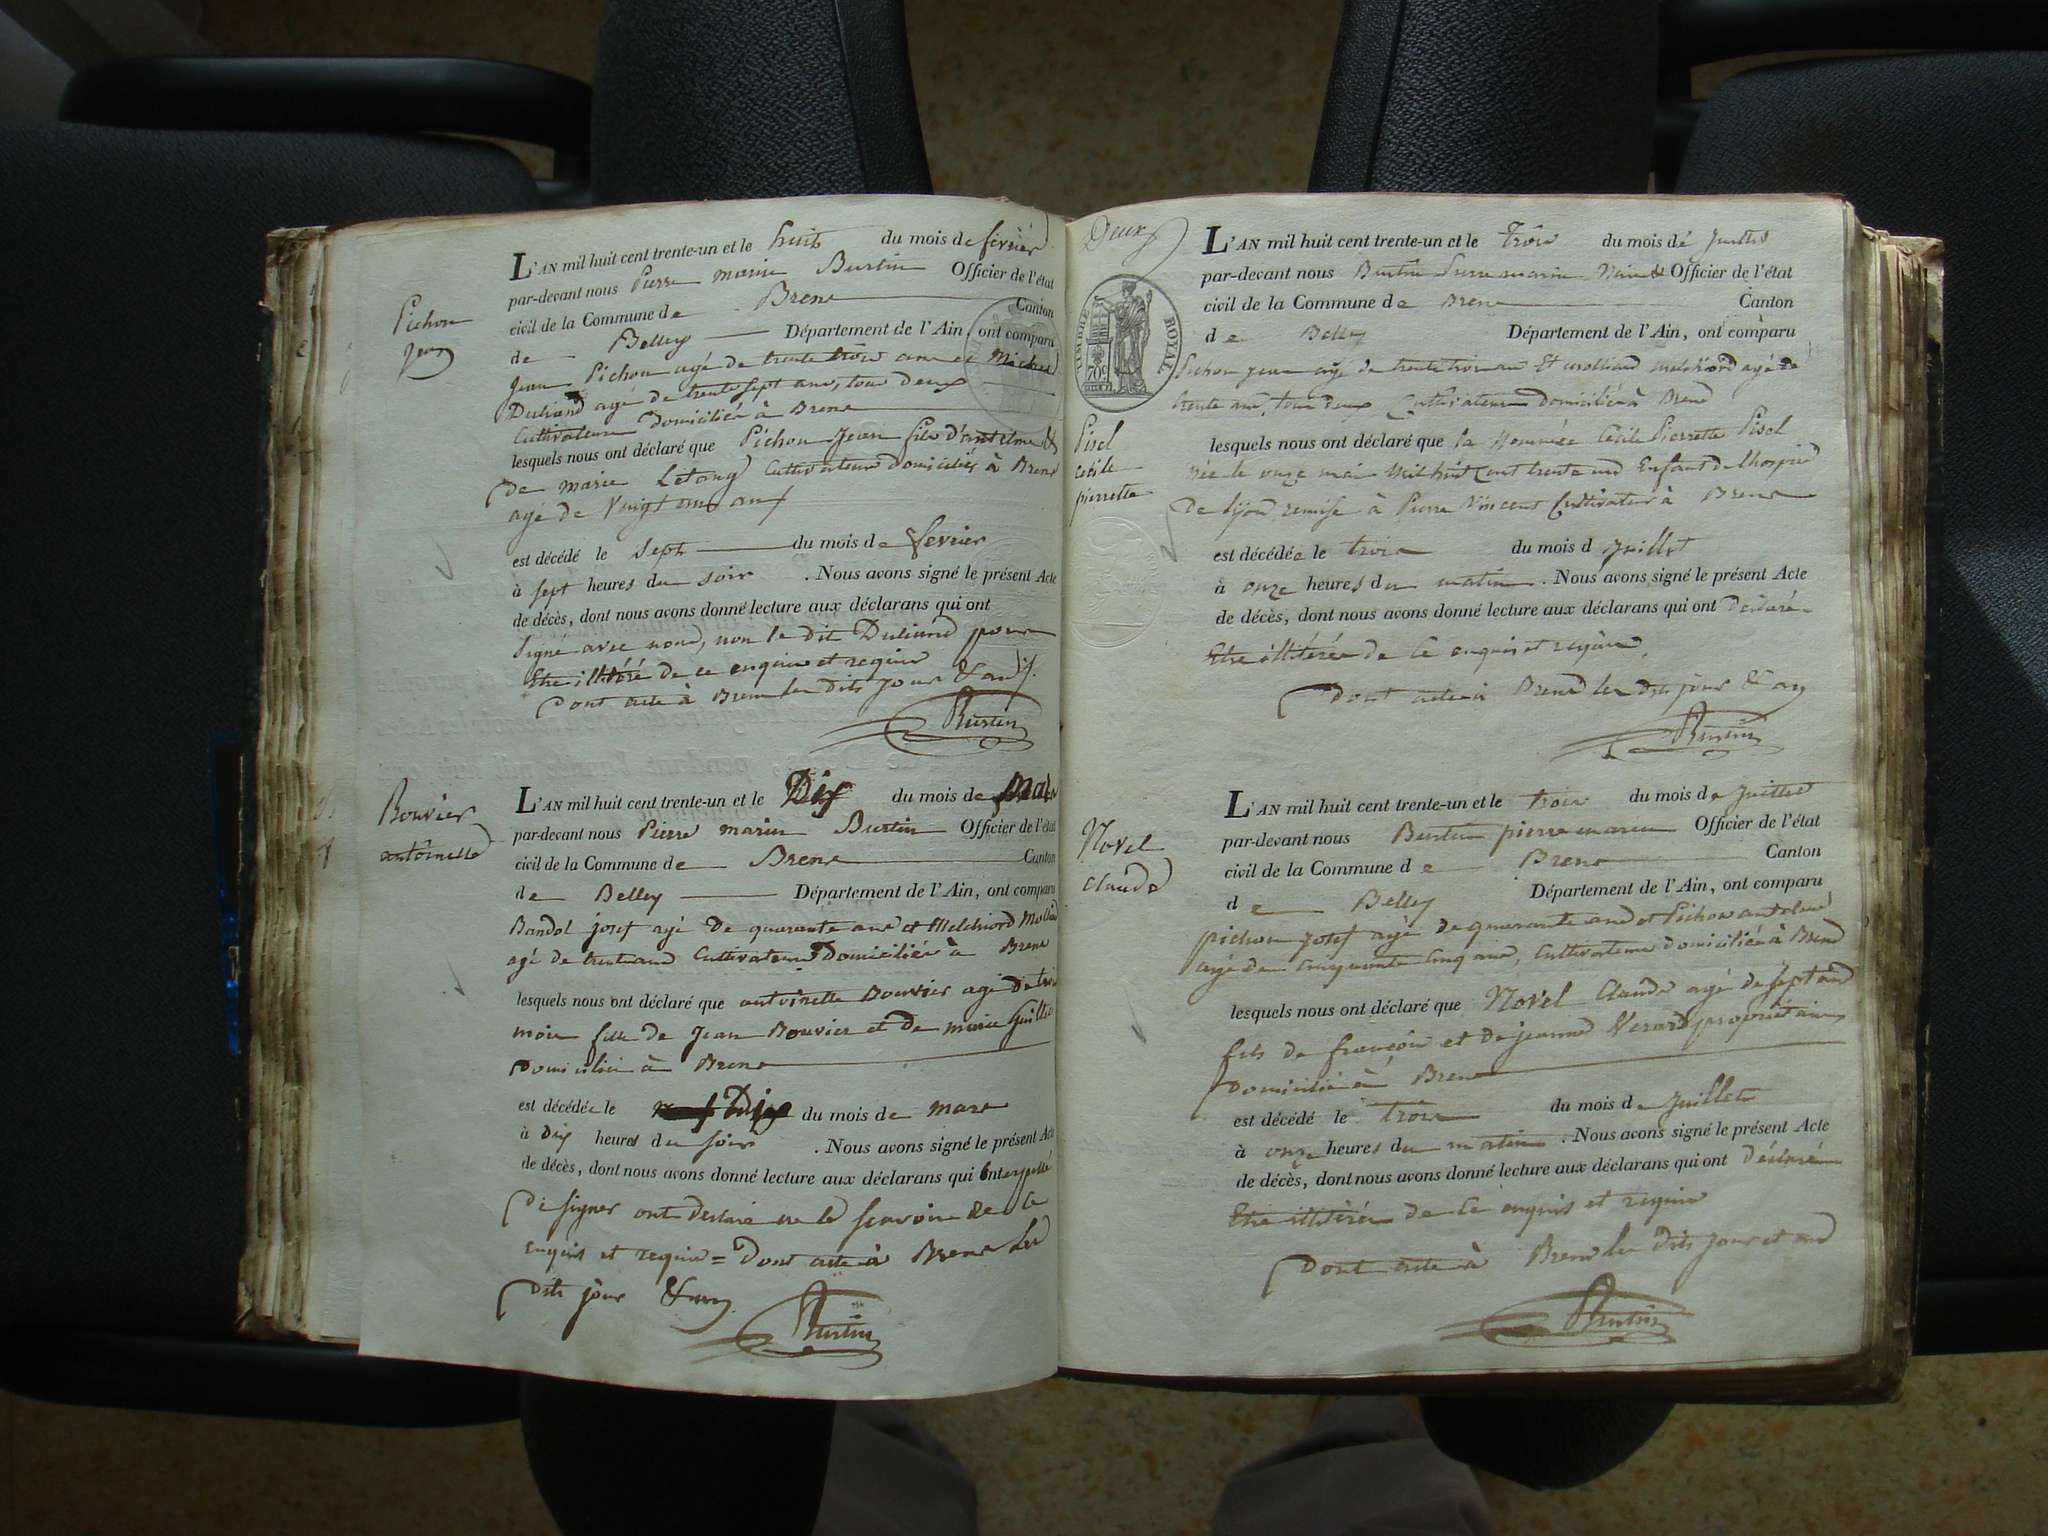 Pichon
Jean
L'AN mil huit cent trente-un et le huit du mois de février
par-devant nous Pierre marie Burtin Officier de l'état
civil de la Commune de Brens Canton
de Belley Département de l'Ain, ont comparu
Jean Pichon agé de trente trois ans et Michel
Duliand agé de trente sept ans, tous deux
Cultivateurs Domiciliés à Brens
lesquels nous ont déclaré que Pichon Jean fils d'antelme &
de marie Letang Cultivateurs domiciliés à Brens
agé de Vingt ans
est décédé le sept du mois de fevrier
à sept heures du soir . Nous avons signé le présent Acte
de décès, dont nous avons donné lecture aux déclarans qui ont
signé avec nous, non le dit Duliand pour
Etre illitéré de ce enquis et requis
Dont acte à Brens les dits jour & an
Burtin
Bouvier
antoinette
L'AN mil huit cent trente-un et le Dix du mois de mars
par-devant nous Pierre marie Burtin Officier de l'état
civil de la Commune de Brens Canton
de Belley Département de l'Ain, ont comparu
Bandol josef agé de quarante ans et Melchiord Molliard
agé de trente ans Cultivateurs Domiciliés à Brens
lesquels nous ont déclaré que antoinette Bouvier agé de trois
mois fille de Jean Bouvier et de marie Guillot
Domicilié à Brens
est décédée le Dix du mois de mars
à dix heures du soir . Nous avons signé le présent Acte
de décès, dont nous avons donné lecture aux déclarans qui interpellé
De signer ont declaré ne le scavoir de ce
enquis et requis = Dont acte à Brens les
Dits jour & an
Burtin
Deux
TIMBRE ROYAL
70c
L'AN mil huit cent trente-un et le trois du mois de juillet
par-devant nous Burtin Pierre marie Maire & Officier de l'état
civil de la Commune de Brens Canton
de Belley Département de l'Ain, ont comparu
Pichon jean agé de trente trois ans Et molliard melchiord agé de
trente ans, tous deux Cultivateurs domiciliés à Brens
Pisel
cecile
pierrette
lesquels nous ont déclaré que la Nommée Cecile Pierrette Pisel
née le onze mai mil huit cent trente un Enfant de l'hospice
De Lyon remise à Pierre Vincent Cultivateur à Brens
est décédée le trois du mois d juillet
à onze heures du matin . Nous avons signé le présent Acte
de décès, dont nous avons donné lecture aux déclarans qui ont déclaré
Etre illitérés de ce enquis et requis.
Dont acte à Brens les dits jour & an
Burtin
Novel
Claude
L'AN mil huit cent trente-un et le trois du mois de juillet
par-devant nous Burtin pierre marie Officier de l'état
civil de la Commune de Brens Canton
de Belley Département de l'Ain, ont comparu
pichon josef agé de quarante ans et Pichon antelme
agé de cinquante cinq ans, Cultivateurs domiciliés à Brens
lesquels nous ont déclaré que Novel Claude agé de sept ans
fils de françois et de jeanne Verard propriétaires
Domicilié à Brens
est décédé le trois du mois de juillet
à onze heures du matin . Nous avons signé le présent Acte
de décès, dont nous avons donné lecture aux déclarans qui ont déclaré
Etre illitérés de ce enquis et requis
Dont acte à Brens les Dits jour et an
Burtin